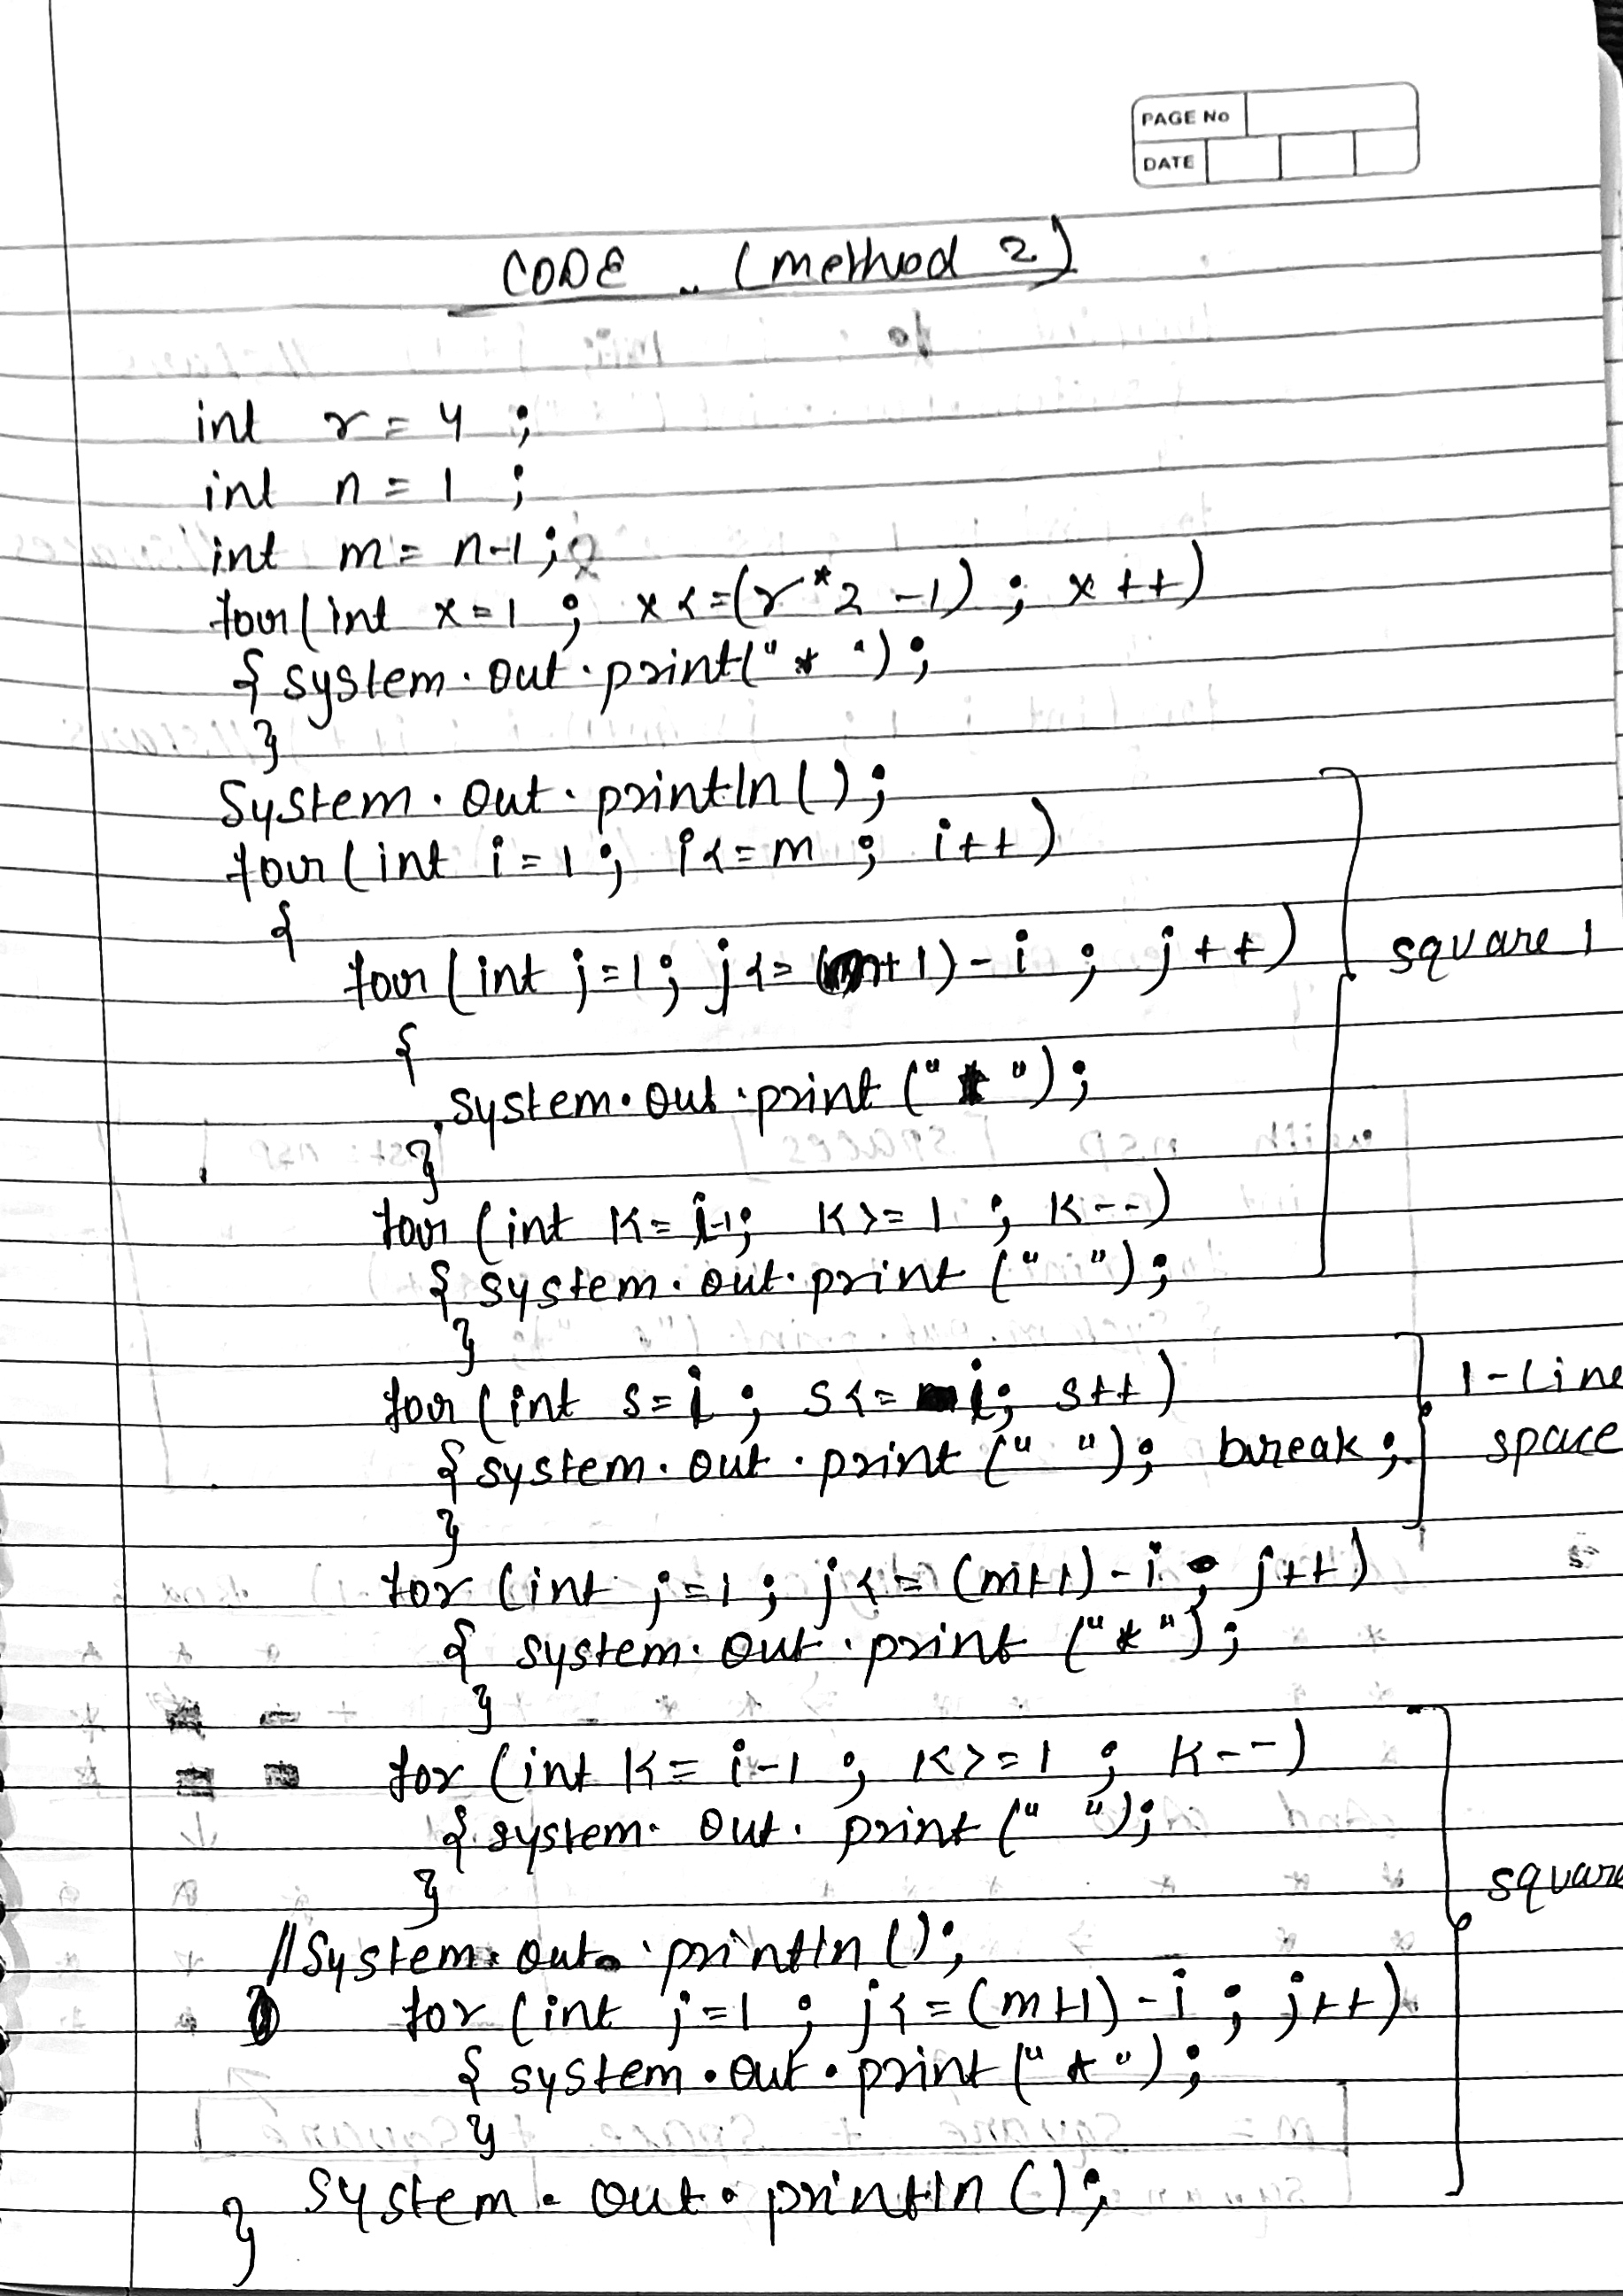 PAGE No
DATE
CODE .. (method 2)
int r = 4 ;
int n = 1 ;
int m = n-1 ;
for (int x = 1 ; x <= (r*2 -1) ; x ++)
{ system.out.print("* ") ;
}
System.out.println() ;
for (int i = 1 ; i <= m ; i++)
{
for (int j = 1 ; j <= (m+1) - i ; j++)
square 1
{
system.out.print ("*") ;
}
for (int K = i-1 ; K >= 1 ; K--)
{ system.out.print (" ") ;
}
for (int s = i ; s <= i ; s++)
1-Line
{ system.out.print (" ") ; break ;
space
}
for (int j = 1 ; j <= (m+1) - i ; j++)
{ system.out.print ("*") ;
}
for (int K = i-1 ; K >= 1 ; K--)
{ system.out.print (" ") ;
}
square
//System.out.println () ;
for (int j = 1 ; j <= (m+1) - i ; j++)
{ system.out.print ("*") ;
}
System.out.println () ;
}